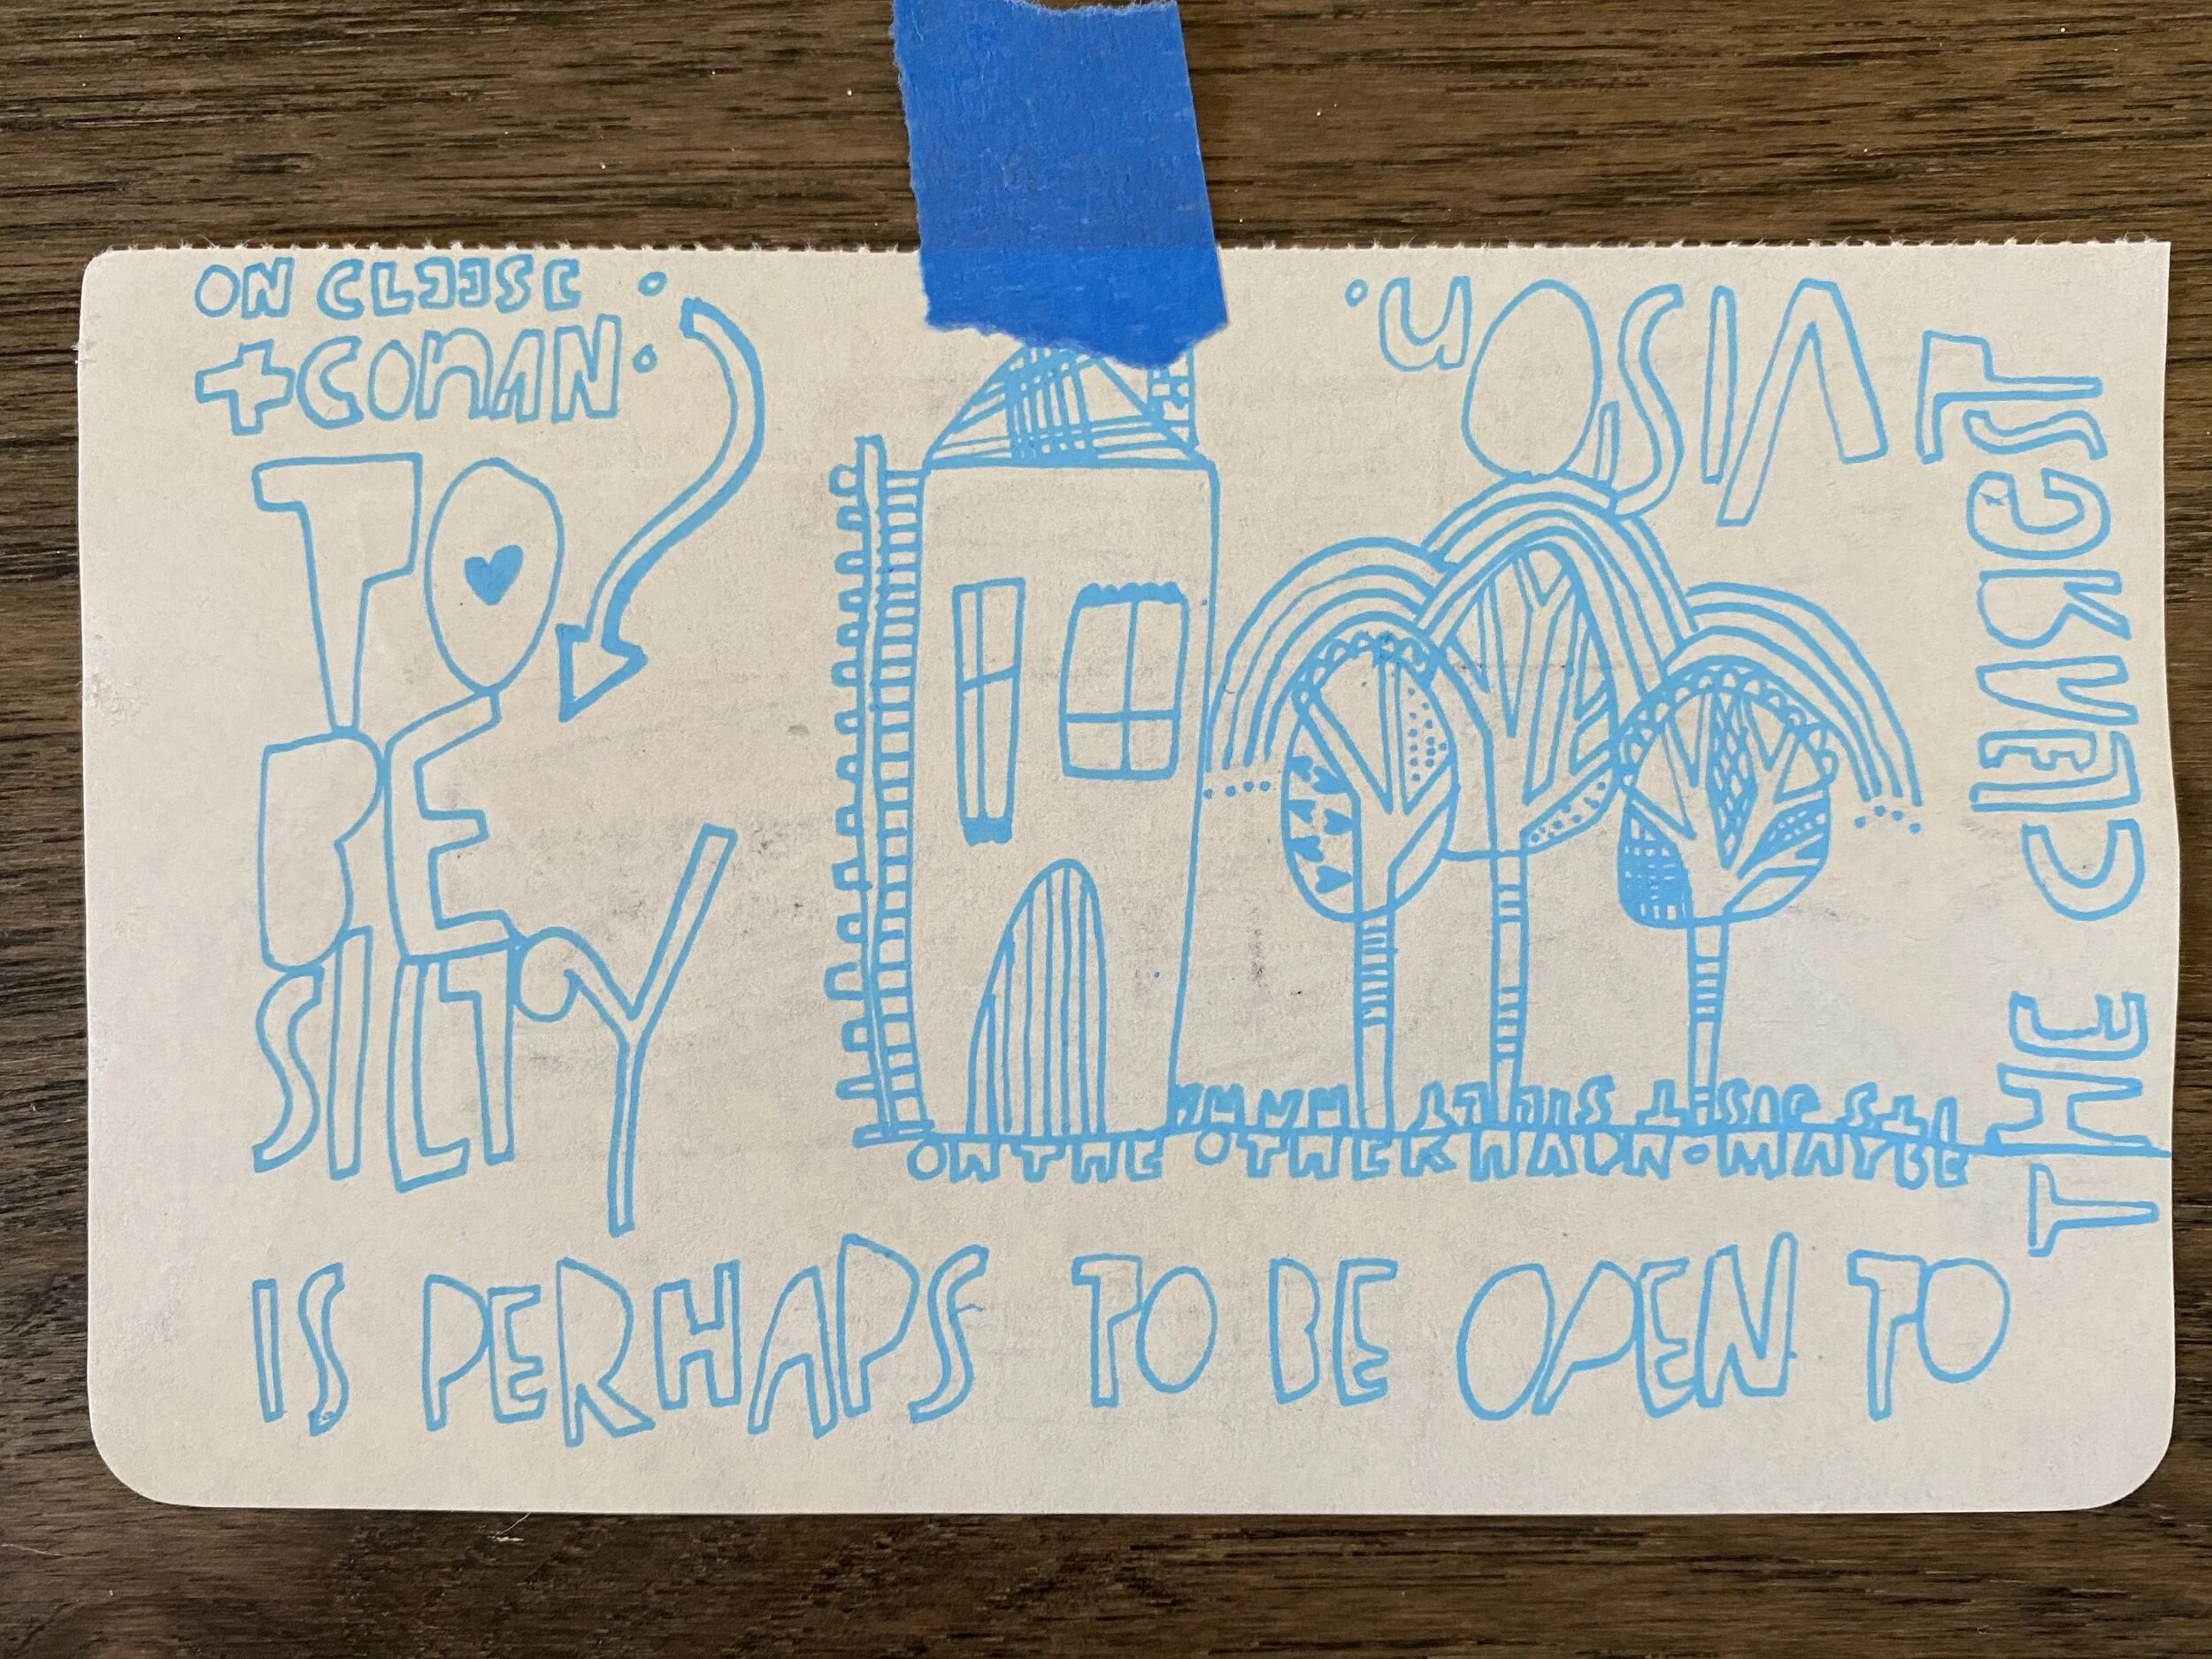 ON CLEESE
+ CONAN:
TO
BE
SILLY
IS PERHAPS TO BE OPEN TO
THE CLEAREST
VISION.
ON THE OTHER HADN. MAYBE